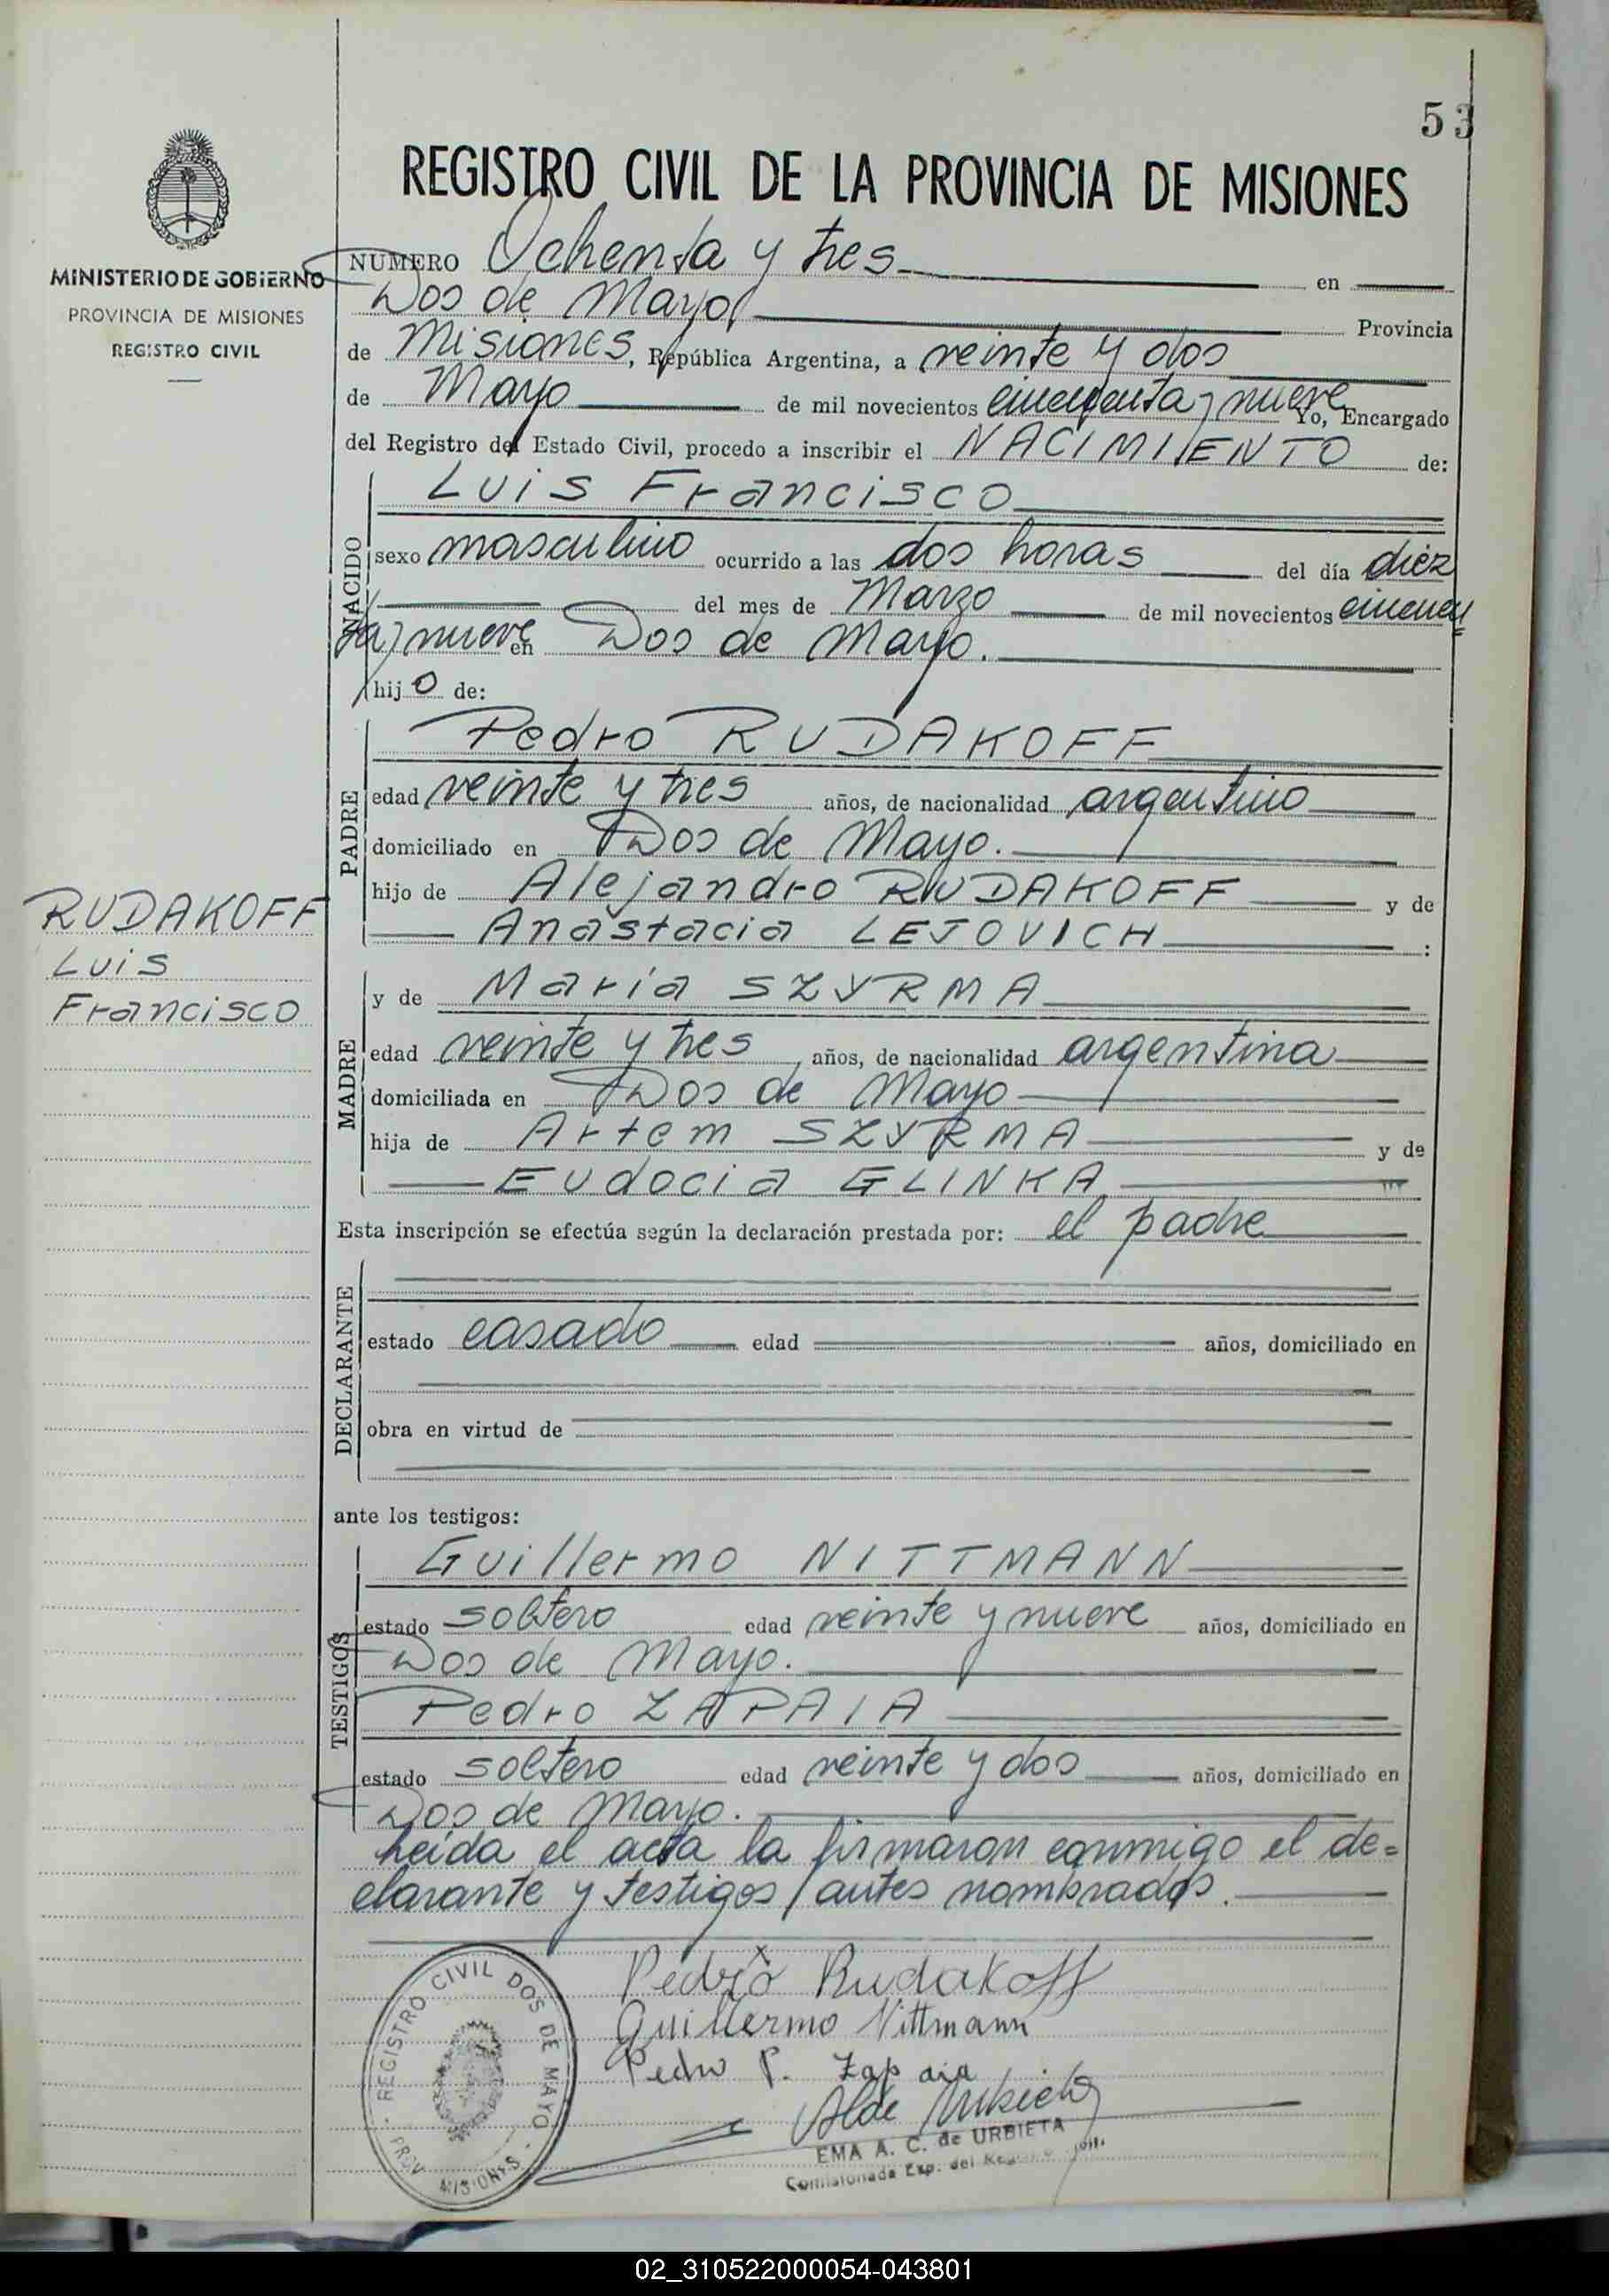 53
REGISTRO CIVIL DE LA PROVINCIA DE MISIONES
MINISTERIO DE GOBIERNO
PROVINCIA DE MISIONES
REGISTRO CIVIL
NUMERO Ochenta y tres en
Dos de Mayo, Provincia
de Misiones, República Argentina, a veinte y dos
de Mayo de mil novecientos cincuenta y nueve Yo, Encargado
del Registro del Estado Civil, procedo a inscribir el NACIMIENTO de:
NACIDO
Luis Francisco
sexo masculino ocurrido a las dos horas del día diez
del mes de Marzo de mil novecientos cincuen=
ta y nueve en Dos de Mayo.
hijo de:
PADRE
Pedro RUDAKOFF
edad veinte y tres años, de nacionalidad argentino
domiciliado en Dos de Mayo.
hijo de Alejandro RUDAKOFF y de
Anastacia LEJOVICH :
RUDAKOFF
Luis
Francisco
MADRE
y de María SZYRMA
edad veinte y tres, años, de nacionalidad argentina
domiciliada en Dos de Mayo
hija de Artem SZYRMA y de
Eudocia GLINKA
Esta inscripción se efectúa según la declaración prestada por: el padre
DECLARANTE
estado casado edad años, domiciliado en
obra en virtud de
ante los testigos:
TESTIGOS
Guillermo NITTMANN
estado soltero edad veinte y nueve años, domiciliado en
Dos de Mayo.
Pedro ZAPAIA
estado soltero edad veinte y dos años, domiciliado en
Dos de Mayo.
Leída el acta la firmaron conmigo el de=
clarante y testigos antes nombrados.
Pedro Rudakoff
Guillermo Nittmann
Pedro P. Zapaia
REGISTRO CIVIL DOS DE MAYO
PROV. MISIONES
EMA A. C. de URBIETA
Comisionada Exp. del
02_310522000054-043801